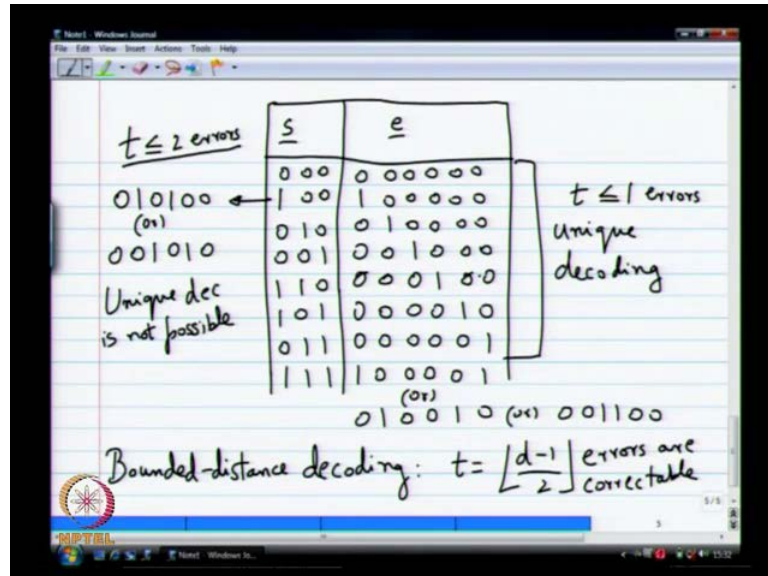 Note1 - Windows Journal
File Edit View Insert Actions Tools Help
t ≤ 2 errors
010100
(or)
001010
Unique dec
is not possible
s e
000 000000
100 100000
010 010000
001 001000
110 000100
101 000010
011 000001
111 100001
(or)
010010 (or) 001100
t ≤ 1 errors
Unique
decoding
Bounded-distance decoding: t = ⌊(d-1)/2⌋ errors are
correctable
5/5
5
NPTEL
Note1 - Windows Jo...
15:32